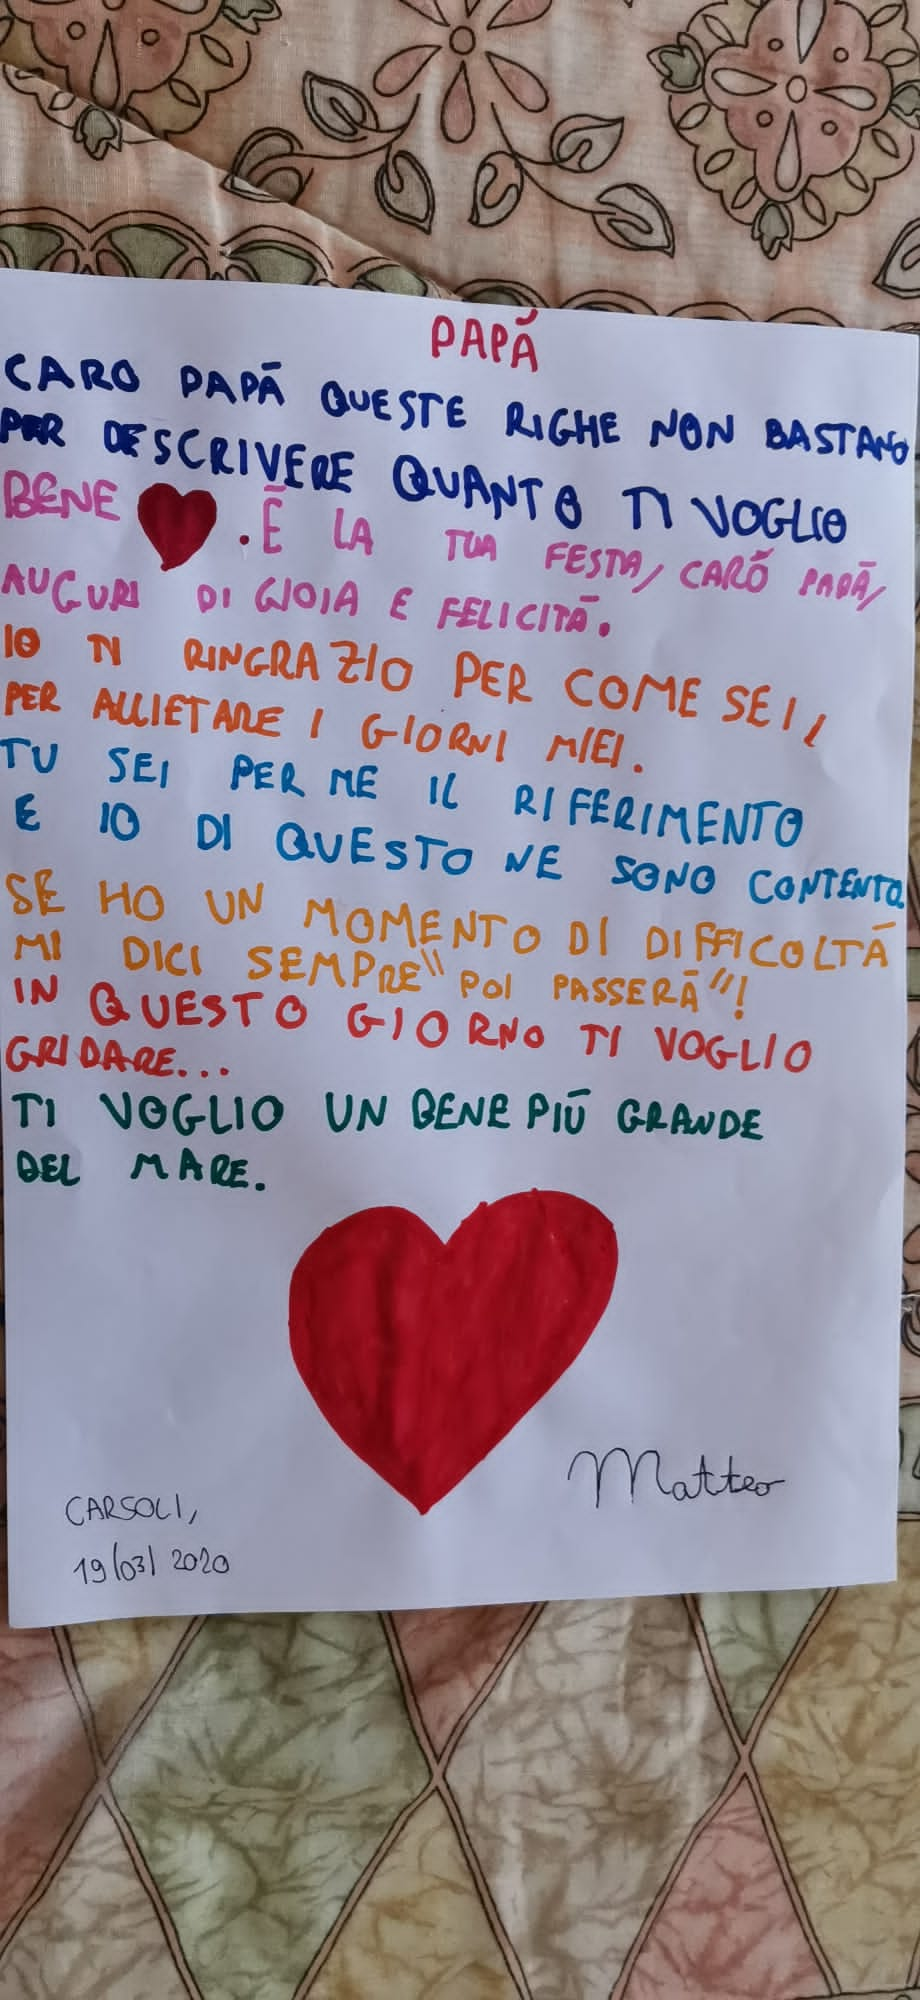 PAPÀ
CARO PAPÀ QUESTE RIGHE NON BASTANO
PER DESCRIVERE QUANTO TI VOGLIO
BENE ❤. È LA TUA FESTA, CARO PAPÀ,
AUGURI DI GIOIA E FELICITÀ.
IO TI RINGRAZIO PER COME SEI,
PER ALLIETARE I GIORNI MIEI.
TU SEI PER ME IL RIFERIMENTO
E IO DI QUESTO NE SONO CONTENTO.
SE HO UN MOMENTO DI DIFFICOLTÀ
MI DICI SEMPRE "POI PASSERÀ"!
IN QUESTO GIORNO TI VOGLIO
GRIDARE...
TI VOGLIO UN BENE PIÙ GRANDE
DEL MARE.
Matteo
CARSOLI,
19/03/2020